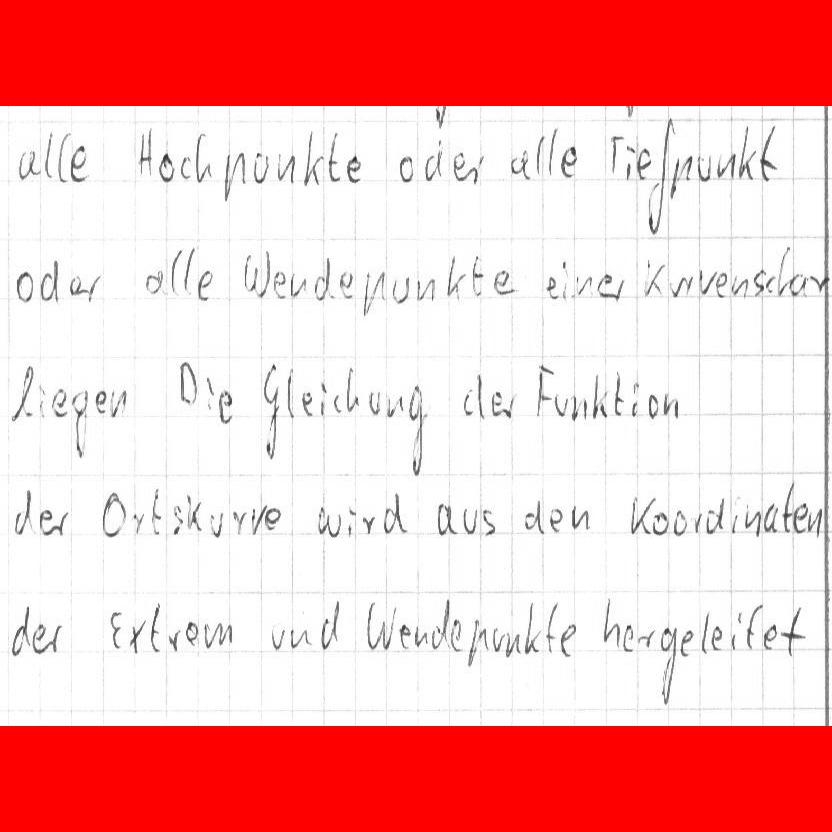 alle Hochpunkte oder alle Tiefpunkt
oder alle Wendepunkte einer Kurvenschar
liegen Die Gleichung der Funktion
der Ortskurve wird aus den Koordinaten
der Extrem und Wendepunkte hergeleitet